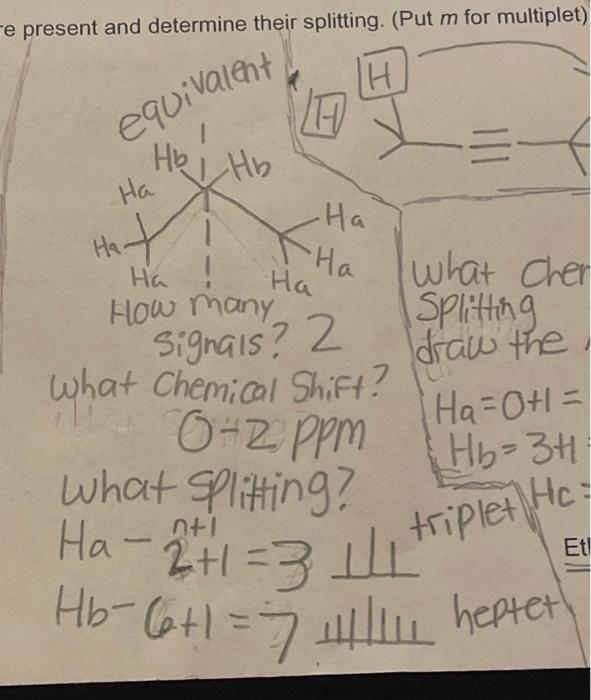 e present and determine their splitting. (Put m for multiplet)
equivalent
H
H
Hb Hb
Ha
Ha
Ha
Ha
Ha
Ha
How many
signals? 2
What Chemical Shift?
0-2 ppm
What Splitting?
n+1
Ha - 2+1 = 3 triplet
Hb - 6+1 = 7 heptet
what Chem
Splitting
draw the
Ha = 0+1 =
Hb = 3+1
Hc =
Eth